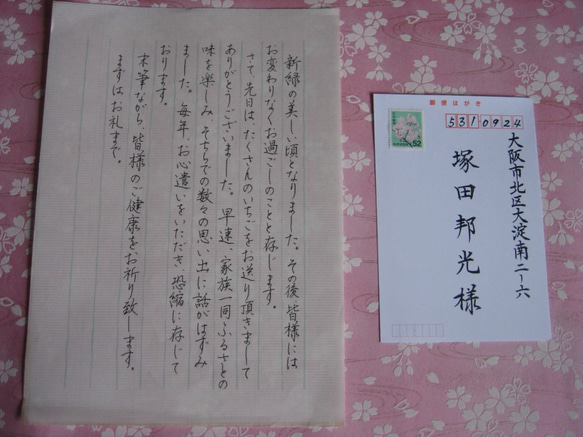 新緑の美しい頃となりました。その後皆様には
お変わりなくお過ごしのことと存じます。
さて、先日は、たくさんのいちごをお送り頂きまして
ありがとうございました。早速、家族一同ふるさとの
味を楽しみ、そちらでの数々の思い出に話がはずみ
ました。毎年、お心遣いをいただき恐縮に存じて
おります。
末筆ながら、皆様のご健康をお祈り致します。
まずはお礼まで。
郵便はがき
52
5310924
大阪市北区大淀南二ー六
塚田邦光様